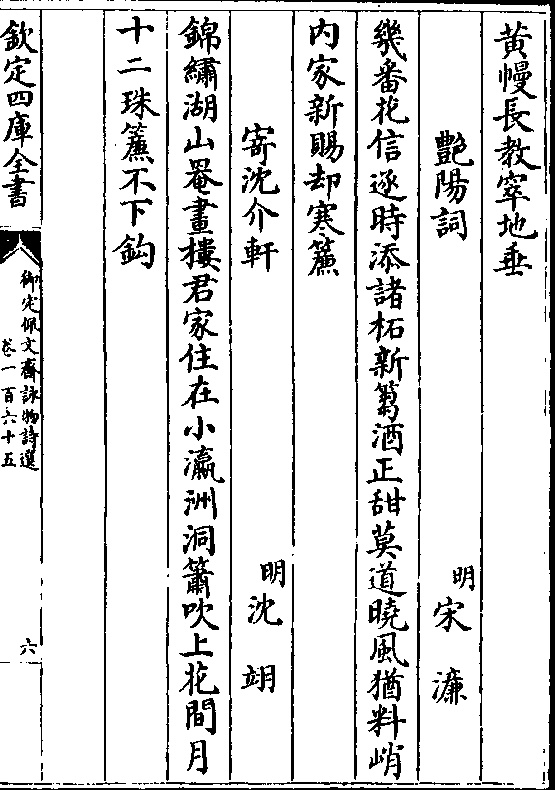 黄幔長教窣地垂
艷陽詞
明宋濂
幾番花信逐時添諸柘新篘酒正甜莫道曉風猶料峭
内家新賜却寒簾
寄沈介軒
明沈翊
錦繡湖山罨畫樓君家住在小瀛洲洞簫吹上花間月
十二珠簾不下鈎
欽定四庫全書
御定佩文齋詠物詩選
卷一百六十五
六